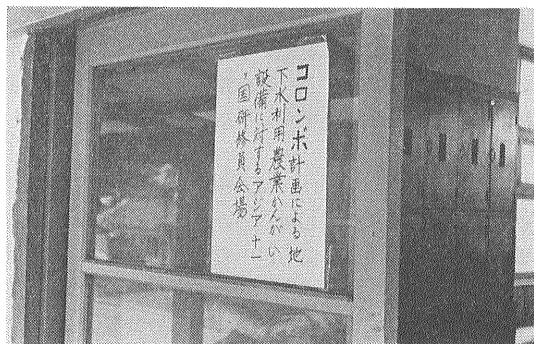 コロンボ計画による地
下水利用農業かんがい
設備に対するアジア十一
ヶ国研修員会場